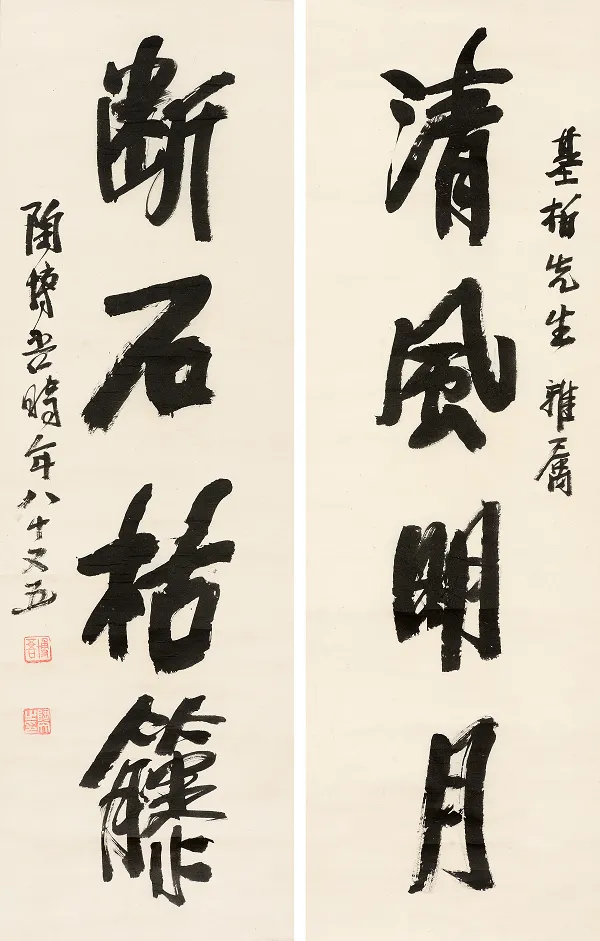 基先生雅屬
清風明月
断石枯籐
陶博吾時年八十又五